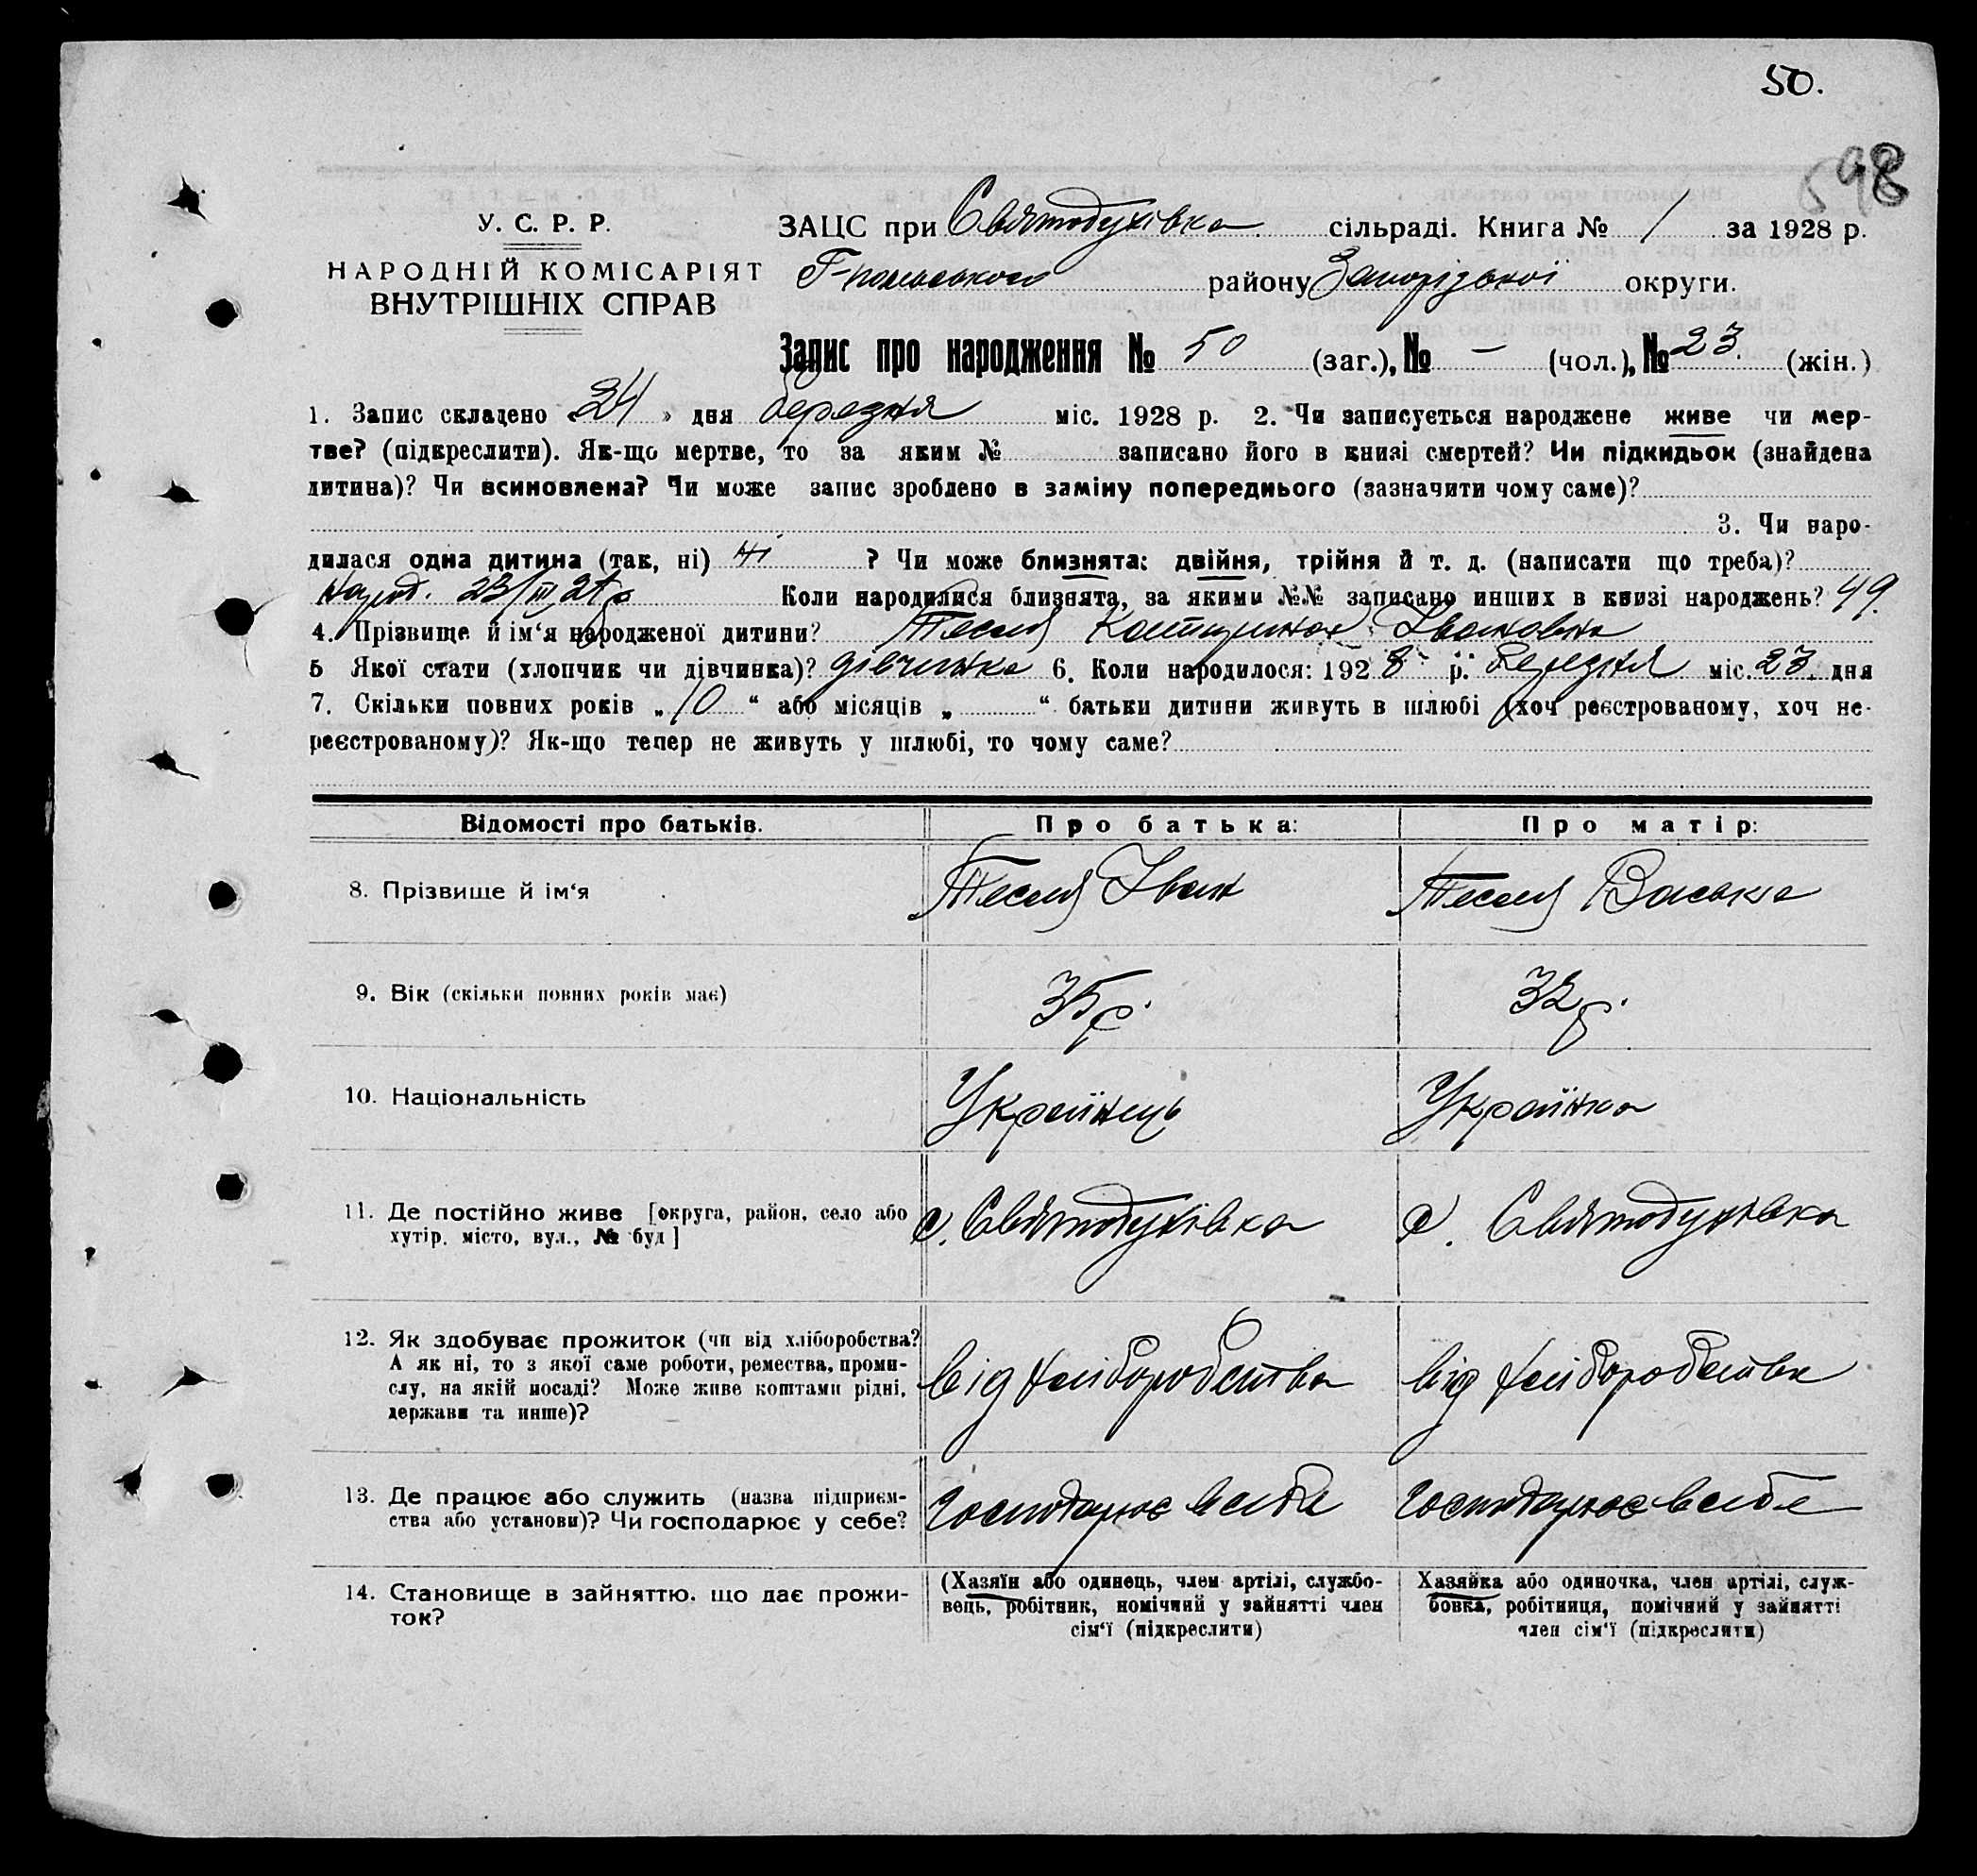 50.
598
У. С. Р. Р.
НАРОДНІЙ КОМІСАРІЯТ
ВНУТРІШНІХ СПРАВ
ЗАЦС при Святодухівка сільраді. Книга № 1 за 1928 р.
району Запорізької округи.
Запис про народження № 50 (заг.), № – (чол.), № 23. (жін.)
1. Запис складено «24» дня березня міс. 1928 р. 2. Чи записується народжене живе чи мер-
тве? (підкреслити). Як-що мертве, то за яким № записано його в книзі смертей? Чи підкидьок (знайдена
дитина)? Чи всиновлена? Чи може запис зроблено в заміну попереднього (зазначити чому саме)?
3. Чи наро-
дилася одна дитина (так, ні) ні ? Чи може близнята: двійня, трійня й т. д. (написати що треба)?
народ. 23/III Коли народилися близнята, за якими №№ записано инших в книзі народжень? 49.
4. Прізвище й ім‘я народженої дитини? Тесля Катерина Івановна
5 Якої стати (хлопчик чи дівчинка)? дівчинка 6. Коли народилося: 1928 р. березня міс. 23. дня
7. Скільки повних років „10“ або місяців „ “ батьки дитини живуть в шлюбі (хоч реєстрованому, хоч не-
реєстрованому)? Як-що тепер не живуть у шлюбі, то чому саме?
Відомості про батьків. Про батька: Про матір:
8. Прізвище й ім‘я Тесля Іван Тесля Васька
9. Вік (скільки повних років має) 35 р. 32 р.
10. Національність Українець Українка
11. Де постійно живе [округа, район, село або
хутір, місто, вул., № буд] с. Святодухівка с. Святодухівка
12. Як здобуває прожиток (чи від хліборобства?
А як ні, то з якої саме роботи, ремества, проми-
слу, на якій посаді? Може живе коштами рідні,
держави та инше)? від хліборобства від хліборобства
13. Де працює або служить (назва підприєм-
ства або установи)? Чи господарює у себе? господарює в себе господарює в себе
14. Становище в зайняттю, що дає прожи-
ток?
(Хазяїн або одинець, член артілі, службо-
вець, робітник, помічний у зайнятті член
сім‘ї (підкреслити)
Хазяйка або одиночка, член артілі, служ-
бовка, робітниця, помічний у зайнятті
член сім‘ї (підкреслити)